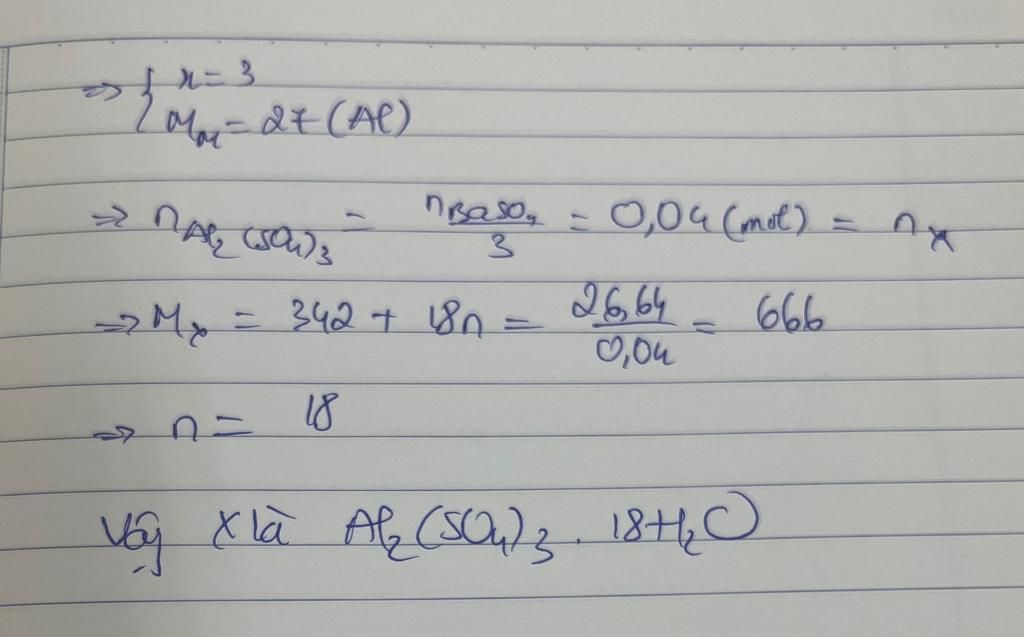 ⇒ { x = 3
M_M = 27 (Al)
⇒ n_Al₂(SO₄)₃ = n_BaSO₄ / 3 = 0,04 (mol) = n_X
⇒ M_X = 342 + 18n = 26,64 / 0,04 = 666
⇒ n = 18
Vậy X là Al₂(SO₄)₃ . 18H₂O